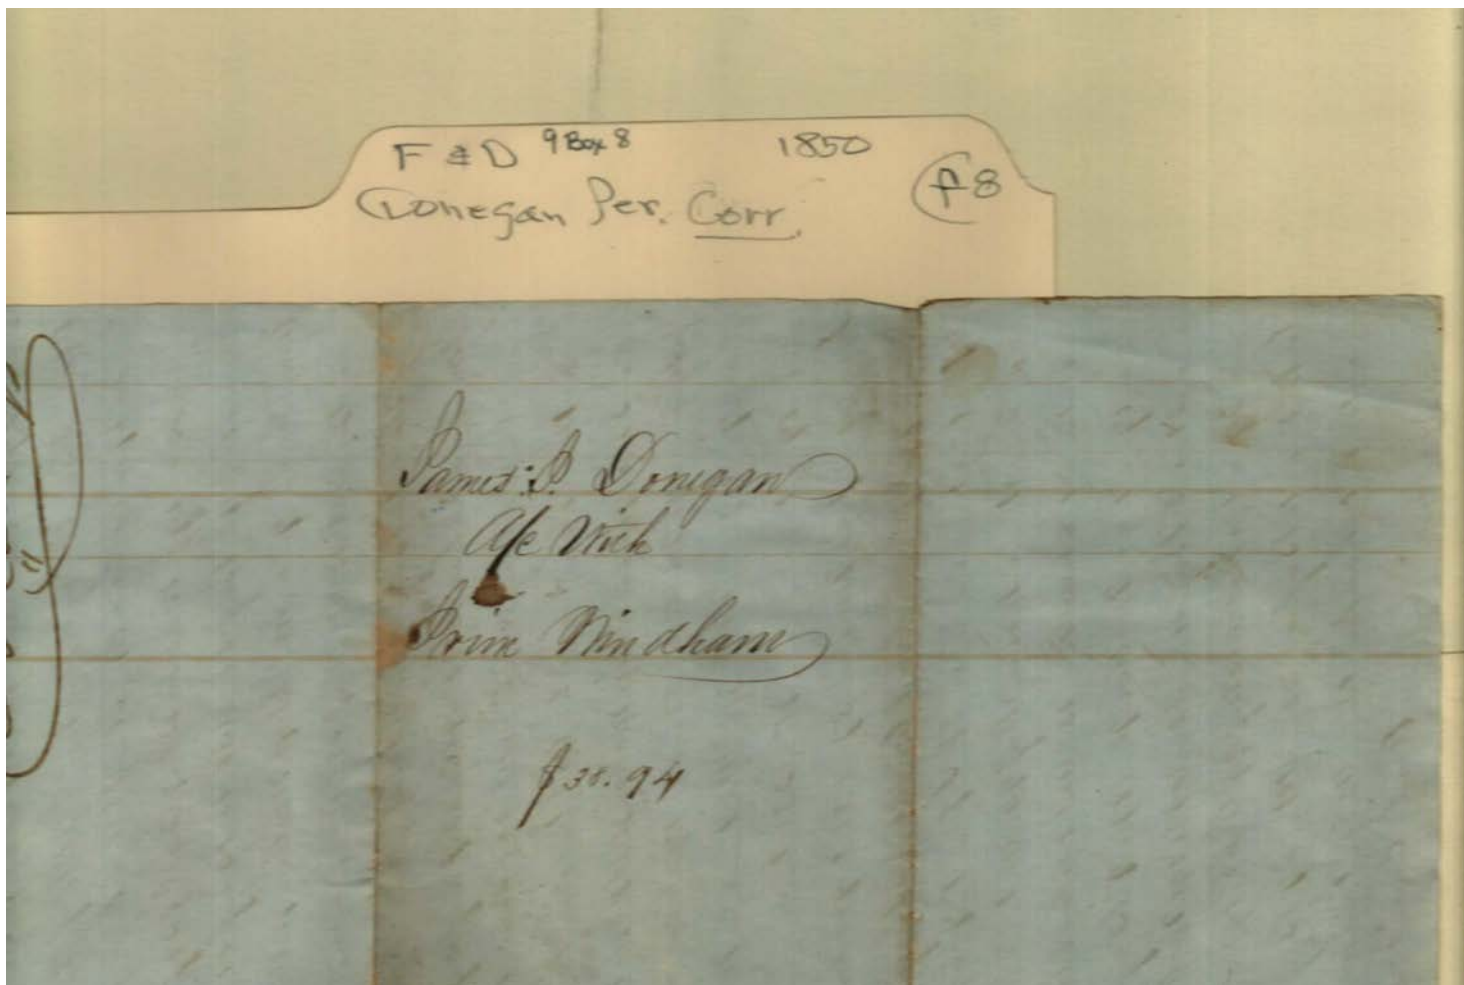 F & D 9 Box 8 1850
Donegan Per. Corr. f8
James P. Donegan
A/c With
Windham
$38.94